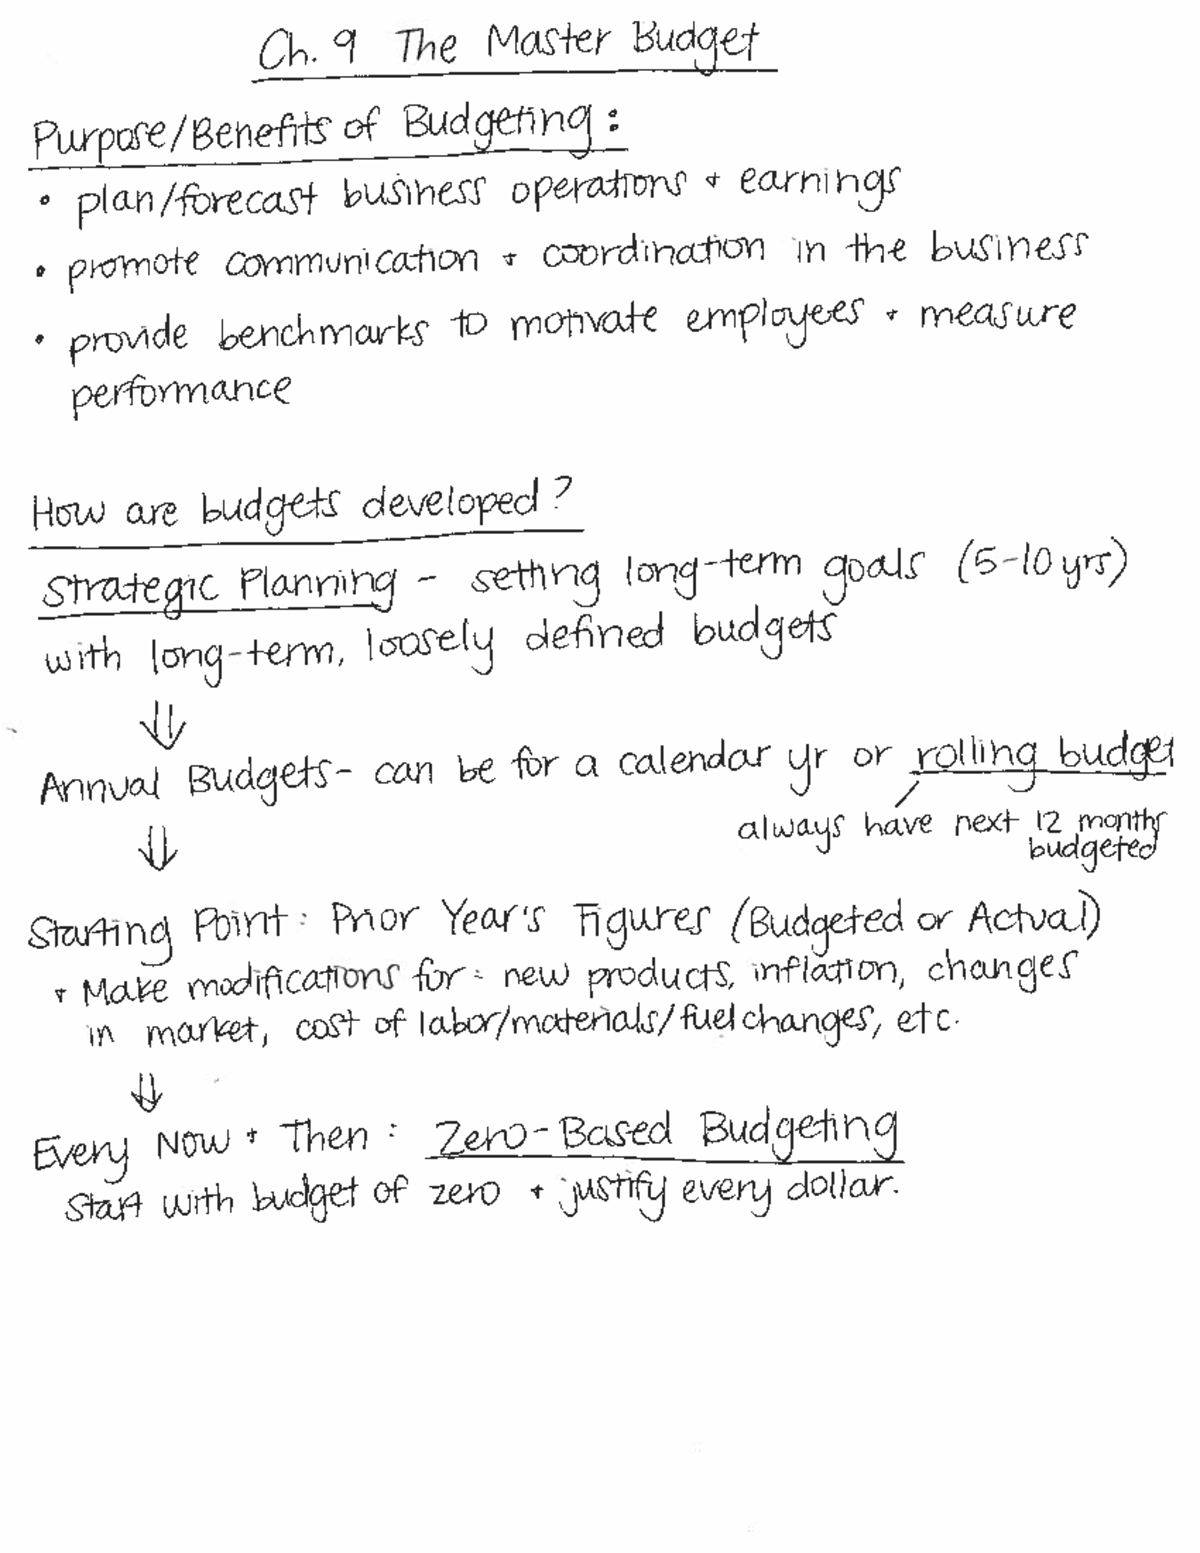 Ch. 9 The Master Budget
Purpose/Benefits of Budgeting:
• plan/forecast business operations + earnings
• promote communication + coordination in the business
• provide benchmarks to motivate employees + measure
performance
How are budgets developed?
Strategic Planning - setting long-term goals (5-10 yrs)
with long-term, loosely defined budgets
⇓
Annual Budgets- can be for a calendar yr or rolling budget
always have next 12 months
budgeted
⇓
Starting Point: Prior Year's Figures (Budgeted or Actual)
+ Make modifications for: new products, inflation, changes
in market, cost of labor/materials/fuel changes, etc.
⇓
Every Now + Then: Zero-Based Budgeting
Start with budget of zero + justify every dollar.